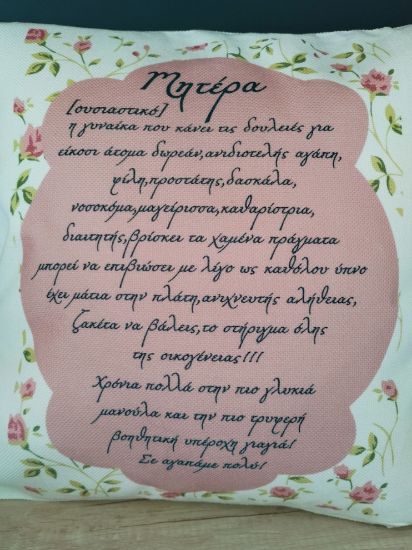 Μητέρα
[ουσιαστικό]
η γυναίκα που κάνει τις δουλειές για
είκοσι άτομα δωρεάν,ανιδιοτελής αγάπη,
φίλη,προστάτης,δασκάλα,
νοσοκόμα,μαγείρισσα,καθαρίστρια,
διαιτητής,βρίσκει τα χαμένα πράγματα
μπορεί να επιβιώσει με λίγο ως καθόλου ύπνο
έχει μάτια στην πλάτη,ανιχνευτής αλήθειας,
ζακέτα να βάλεις,το στήριγμα όλης
της οικογένειας!!!
Χρόνια πολλά στην πιο γλυκιά
μανούλα και την πιο τρυφερή
βοηθητική υπέροχη γιαγιά!
Σε αγαπάμε πολύ!